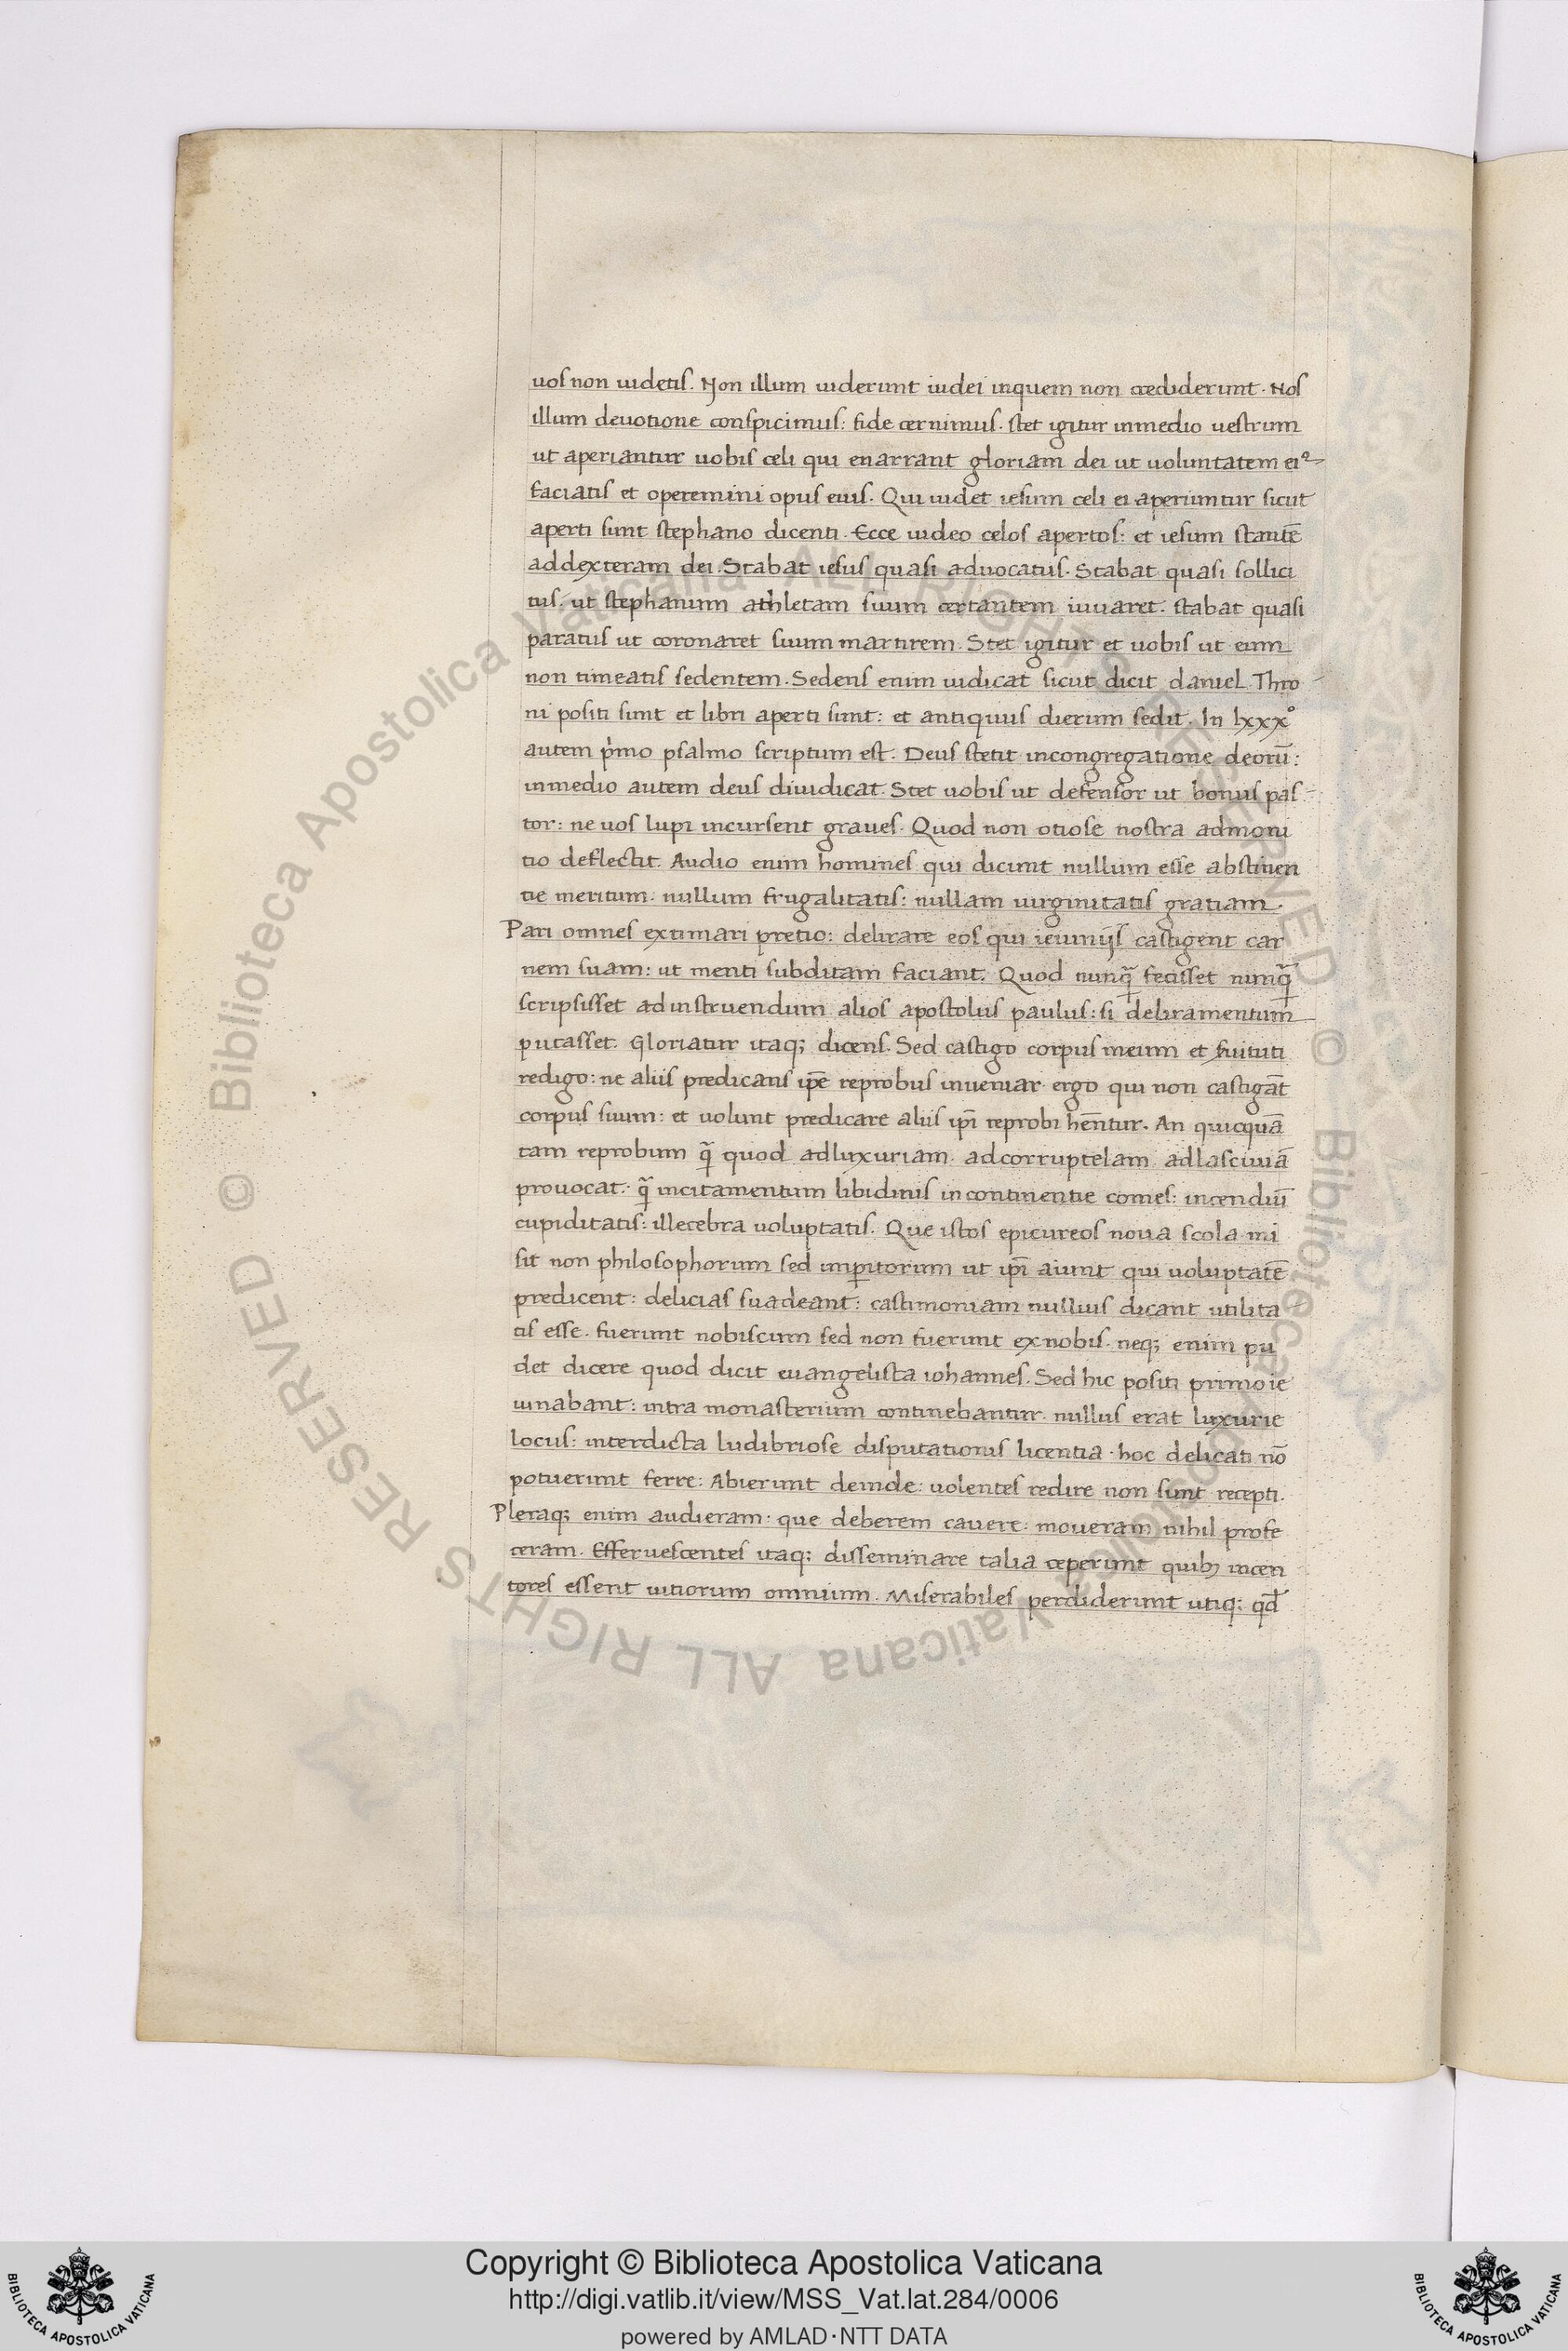 uos non uidetis. Non illum uiderunt iudei inquem non crediderunt. Nos
illum deuotione conspicimus: fide cernimus. stet igitur inmedio uestrum
ut aperiantur uobis celi qui enarrant gloriam dei ut uoluntatem ei⁹
faciatis et operemini opus eius. Qui uidet iesum celi ei aperiuntur sicut
aperti sunt stephano dicenti. Ecce uideo celos apertos: et iesum stantē
addexteram dei. Stabat iesus quasi aduocatus. Stabat quasi sollici
tus: ut stephanum athletam suum certantem iuuaret. stabat quasi
paratus ut coronaret suum martirem. Stet igitur et uobis ut eum
non timeatis sedentem. Sedens enim iudicat sicut dicit daniel. Thro
ni positi sunt et libri aperti sunt: et antiquus dierum sedit. In lxxx°
autem p̍mo psalmo scriptum est. Deus stetit incongregatione deorū:
inmedio autem deus diiudicat. Stet uobis ut defensor ut bonus pas
tor: ne uos lupi incursent graues. Quod non otiose nostra admoni
tio deflectit. Audio enim homines qui dicunt nullum esse abstinen
tie meritum. nullum frugalitatis: nullam uirginitatis gratiam.
Pari omnes extimari pretio: delirare eos qui ieiunijs castigent car
nem suam: ut menti subditam faciant. Quod nunq̄ fecisset nunq̄
scripsisset adinstruendum alios apostolus paulus: si deliramentum
putasset. Gloriatur itaq; dicens. Sed castigo corpus meum et seruituti
redigo: ne aliis predicans ip̄e reprobus inueniar. ergo qui non castigāt
corpus suum: et uolunt predicare aliis ip̄i reprobi hēntur. An quicquā
tam reprobum q̄ quod adluxuriam. adcorruptelam. adlasciuiā
prouocat. q̄ incitamentum libidinis incontinentie comes: incendiū
cupiditatis: illecebra uoluptatis. Que istos epicureos noua scola mi
sit non philosophorum sed imꝑitorum ut ip̄i aiunt qui uoluptatē
predicent: delicias suadeant: castimoniam nullius dicant utilita
tis esse. fuerunt nobiscum sed non fuerunt exnobis. neq; enim pu
det dicere quod dicit euangelista iohannes. Sed hic positi primo ie
iunabant: intra monasterium continebantur. nullus erat luxurie
locus: interdicta ludibriose disputationis licentia. hoc delicati nō
potuerunt ferre: Abierunt deinde: uolentes redire non sunt recepti.
Pleraq; enim audieram: que deberem cauere: moueram nihil profe
ceram. Efferuescentes itaq; disseminare talia ceperunt quibꝫ incen
tores essent uitiorum omnium. Miserabiles perdiderunt utiq; qđ
© Biblioteca Apostolica Vaticana ALL RIGHTS RESERVED © Biblioteca Apostolica Vaticana ALL RIGHTS RESERVED
BIBLIOTECA APOSTOLICA VATICANA
Copyright © Biblioteca Apostolica Vaticana
http://digi.vatlib.it/view/MSS_Vat.lat.284/0006
powered by AMLAD·NTT DATA
BIBLIOTECA APOSTOLICA VATICANA